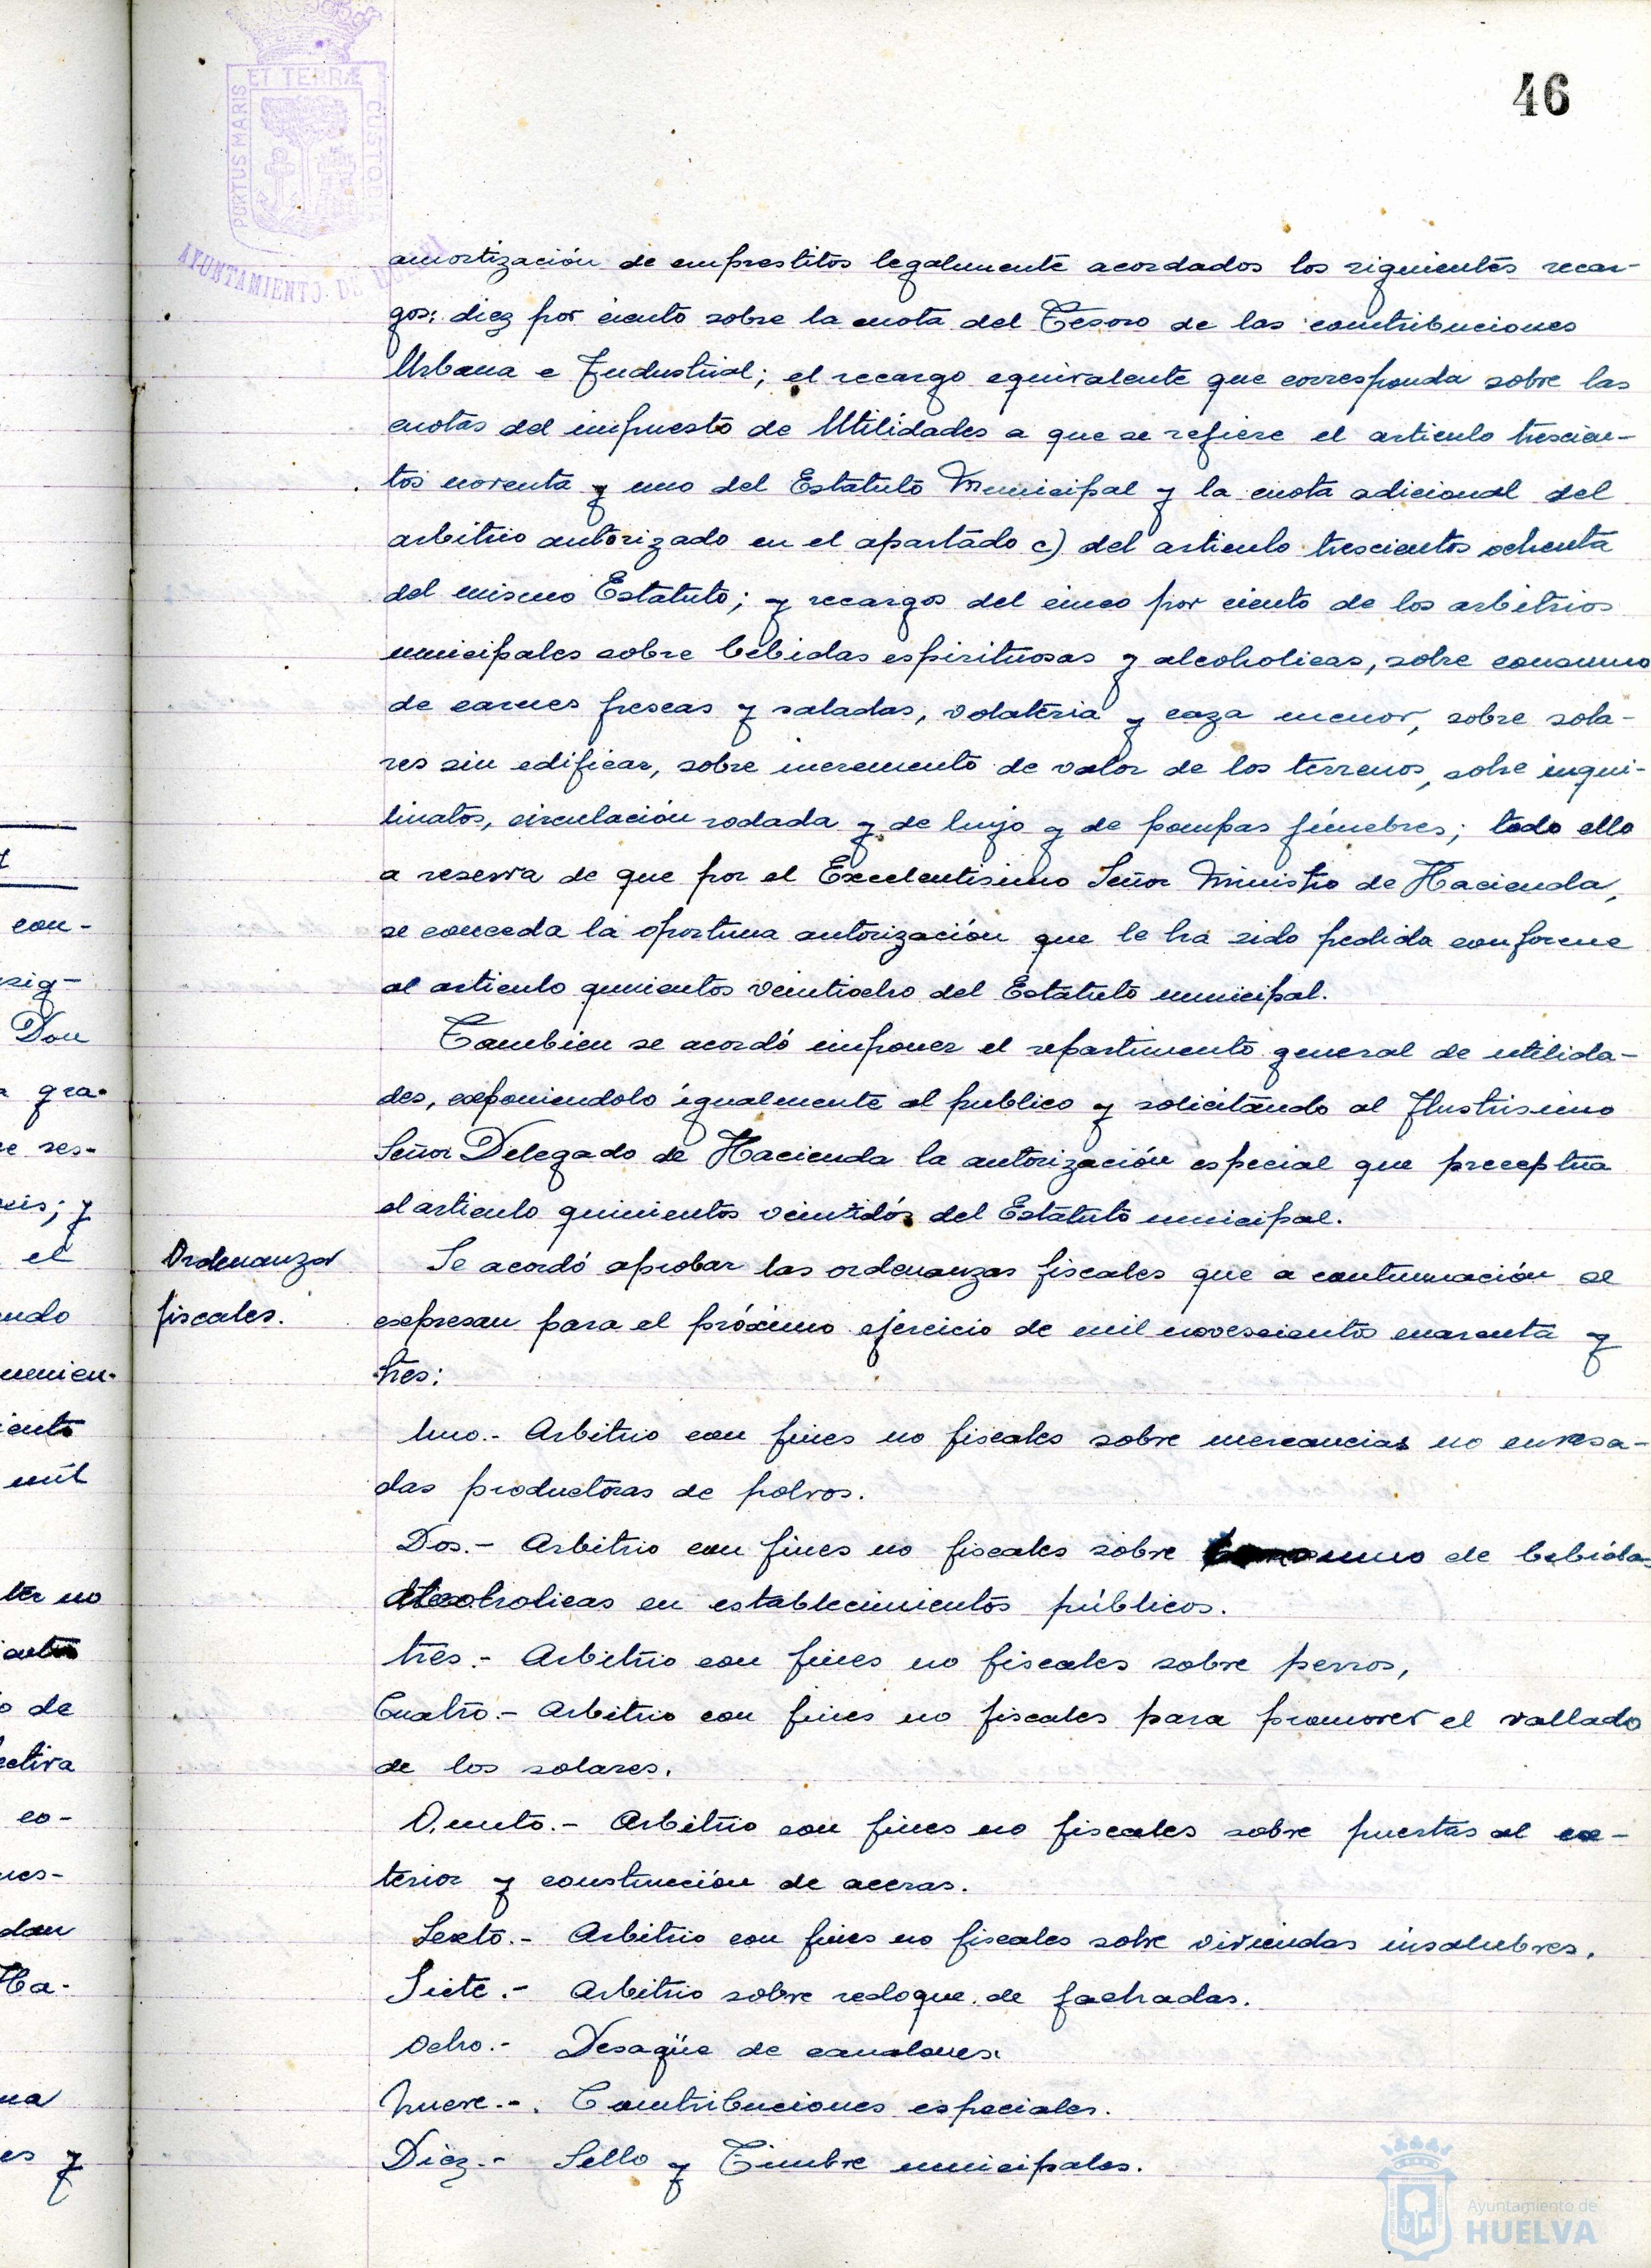 46
PORTUS MARIS ET TERRÆ CUSTODIA
AYUNTAMIENTO DE HUELVA
amortización de emprestitos legalmente acordados los siguientes recar-
gos: diez por ciento sobre la cuota del Tesoro de las contribuciones
Urbana e Industrial; el recargo equivalente que corresponda sobre las
cuotas del impuesto de Utilidades a que se refiere el articulo trescien-
tos noventa y uno del Estatuto Municipal y la cuota adicional del
arbitrio autorizado en el apartado c) del articulo trescientos ochenta
del mismo Estatuto; y recargos del cinco por ciento de los arbitrios
municipales sobre bebidas espirituosas y alcoholicas, sobre consumo
de carnes frescas y saladas, volateria y caza menor, sobre sola-
res sin edificar, sobre incremento de valor de los terrenos, sobre inqui-
linatos, circulación rodada y de lujo y de pompas fúnebres; todo ello
a reserva de que por el Excelentisimo Señor Ministro de Hacienda,
se conceda la oportuna autorización que le ha sido pedida conforme
al articulo quinientos veintiocho del Estatuto municipal.
Tambien se acordó imponer el repartimento general de utilida-
des, exponiendolo igualmente al publico y solicitando al Ilustrisimo
Señor Delegado de Hacienda la autorización especial que preceptúa
el articulo quinientos veintidós del Estatuto municipal.
Ordenanzas
fiscales.
Se acordó aprobar las ordenanzas fiscales que a continuación se
expresan para el próximo ejercicio de mil novescientos cuarenta y
tres:
Uno.- Arbitrio con fines no fiscales sobre mercancias no envasa-
das productoras de polvos.
Dos.- Arbitrio con fines no fiscales sobre consumo de bebidas
alcoholicas en establecimientos públicos.
tres.- Arbitrio con fines no fiscales sobre perros,
Cuatro.- Arbitrio con fines no fiscales para promover el vallado
de los solares.
Quinto.- Arbitrio con fines no fiscales sobre puertas al ex-
terior y construcción de aceras.
Sexto.- Arbitrio con fines no fiscales sobre viviendas insalubres.
Siete.- Arbitrio sobre reloque de fachadas.
Ocho.- Desagüe de canalones.
Nueve.- Contribuciones especiales.
Diez.- Sello y Timbre municipales.
con-
sig-
Don
gra-
res-
; y
el
ndo
mil
ter no
de
ectiva
co-
Ha-
y
Ayuntamiento de
HUELVA